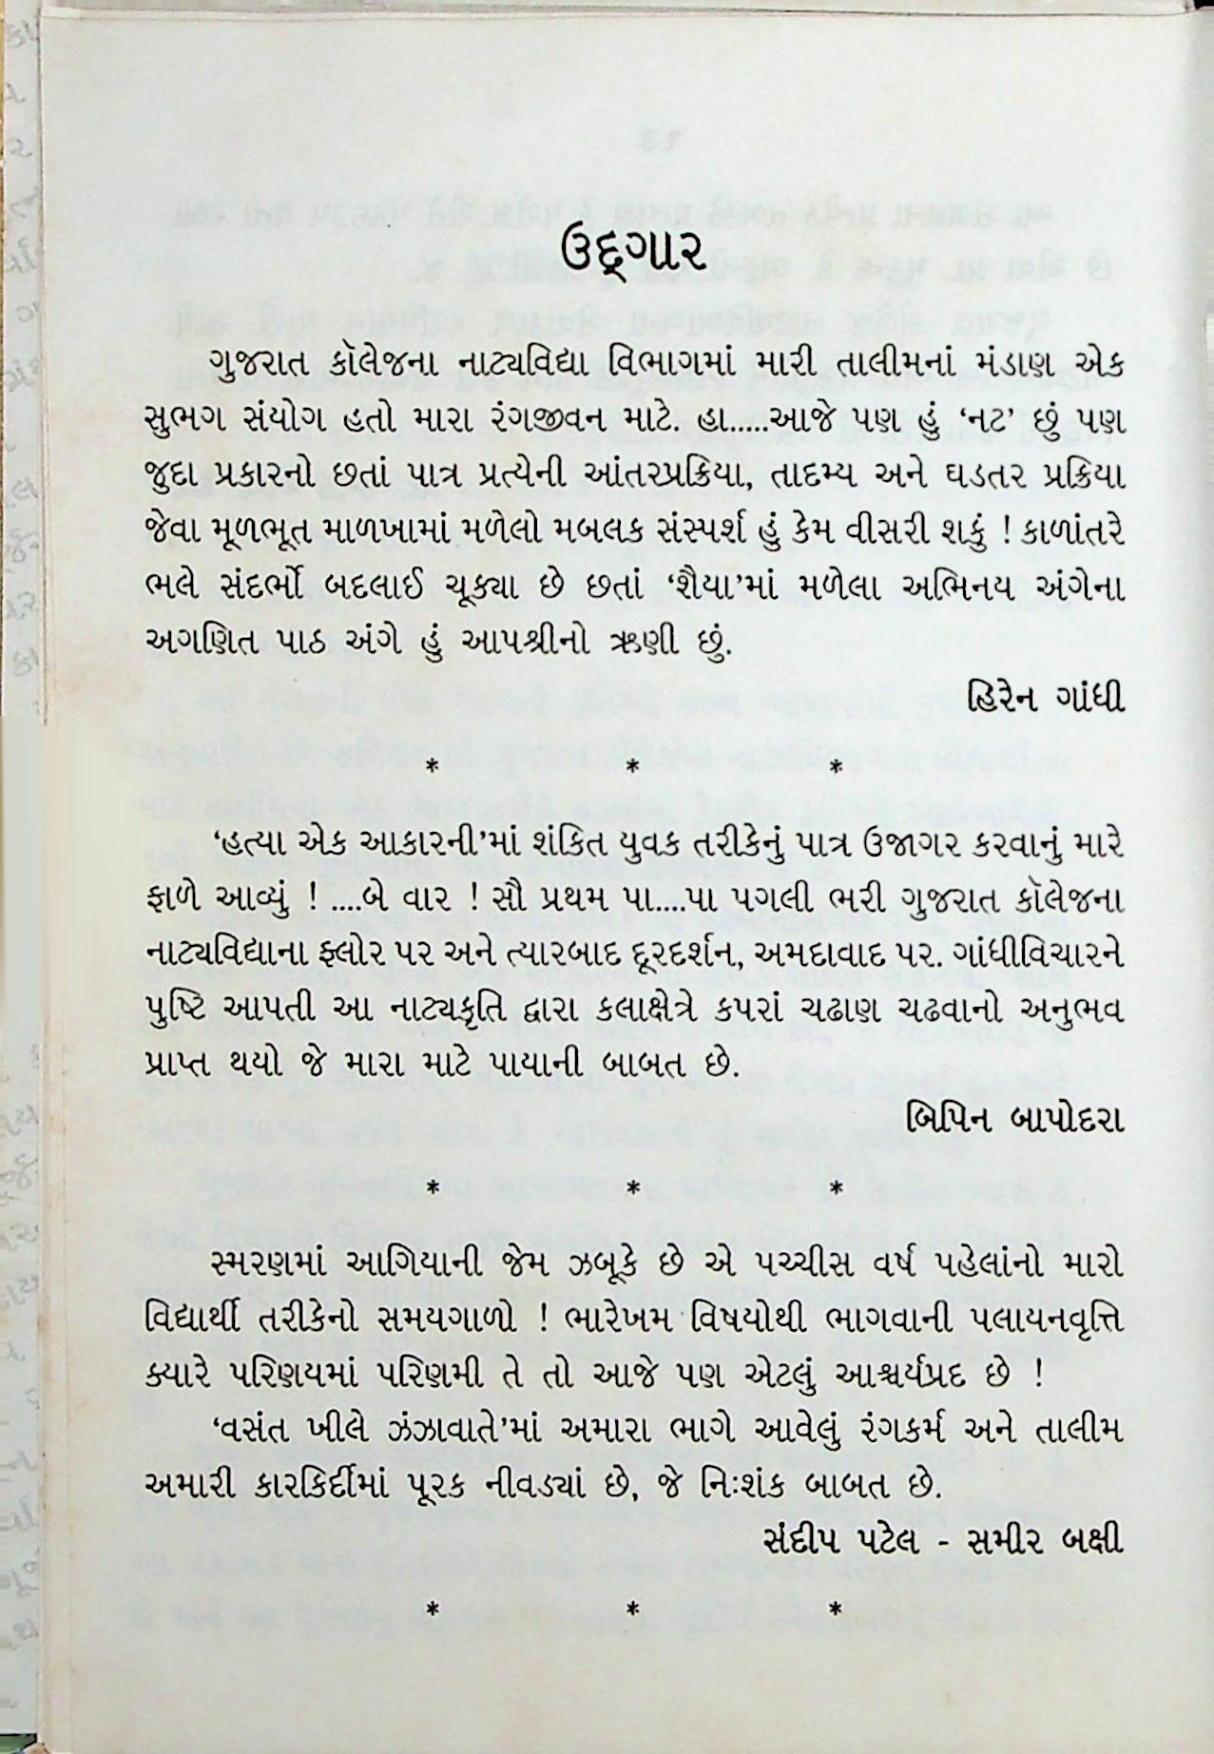 ઉદ્ગાર
ગુજરાત કૉલેજના નાટ્યવિદ્યા વિભાગમાં મારી તાલીમનાં મંડાણ એક
સુભગ સંયોગ હતો મારા રંગજીવન માટે. હા.....આજે પણ હું ‘નટ’ છું પણ
જુદા પ્રકારનો છતાં પાત્ર પ્રત્યેની આંતરપ્રક્રિયા, તાદમ્ય અને ઘડતર પ્રક્રિયા
જેવા મૂળભૂત માળખામાં મળેલો મબલક સંસ્પર્શ હું કેમ વીસરી શકું ! કાળાંતરે
ભલે સંદર્ભો બદલાઈ ચૂક્યા છે છતાં ‘શૈયા’માં મળેલા અભિનય અંગેના
અગણિત પાઠ અંગે હું આપશ્રીનો ઋણી છું.
હિરેન ગાંધી
* * *
‘હત્યા એક આકારની’માં શંકિત યુવક તરીકેનું પાત્ર ઉજાગર કરવાનું મારે
ફાળે આવ્યું ! ....બે વાર ! સૌ પ્રથમ પા....પા પગલી ભરી ગુજરાત કૉલેજના
નાટ્યવિદ્યાના ફ્લોર પર અને ત્યારબાદ દૂરદર્શન, અમદાવાદ પર. ગાંધીવિચારને
પુષ્ટિ આપતી આ નાટ્યકૃતિ દ્વારા કલાક્ષેત્રે કપરાં ચઢાણ ચઢવાનો અનુભવ
પ્રાપ્ત થયો જે મારા માટે પાયાની બાબત છે.
બિપિન બાપોદરા
* * *
સ્મરણમાં આગિયાની જેમ ઝબૂકે છે એ પચ્ચીસ વર્ષ પહેલાંનો મારો
વિદ્યાર્થી તરીકેનો સમયગાળો ! ભારેખમ વિષયોથી ભાગવાની પલાયનવૃત્તિ
ક્યારે પરિણયમાં પરિણમી તે તો આજે પણ એટલું આશ્ચર્યપ્રદ છે !
‘વસંત ખીલે ઝંઝાવાતે’માં અમારા ભાગે આવેલું રંગકર્મ અને તાલીમ
અમારી કારકિર્દીમાં પૂરક નીવડ્યાં છે, જે નિઃશંક બાબત છે.
સંદીપ પટેલ - સમીર બક્ષી
* * *